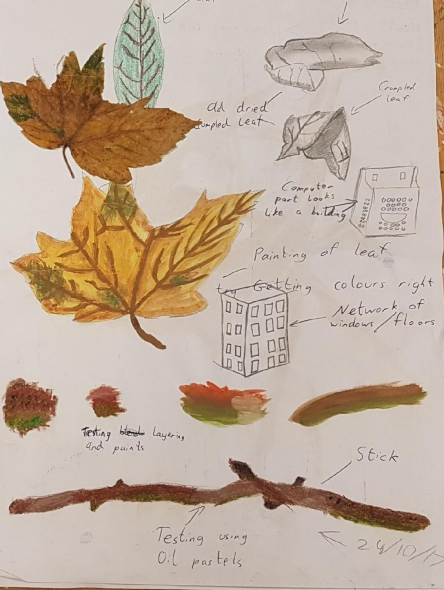 Old dried
Crumpled
leaf
crumpled leaf
Computer
part looks
like a building
Painting of leaf
Getting colours right
Network of
windows/floors
Testing layering
and paints
Stick
Testing using
Oil pastels
24/10/17